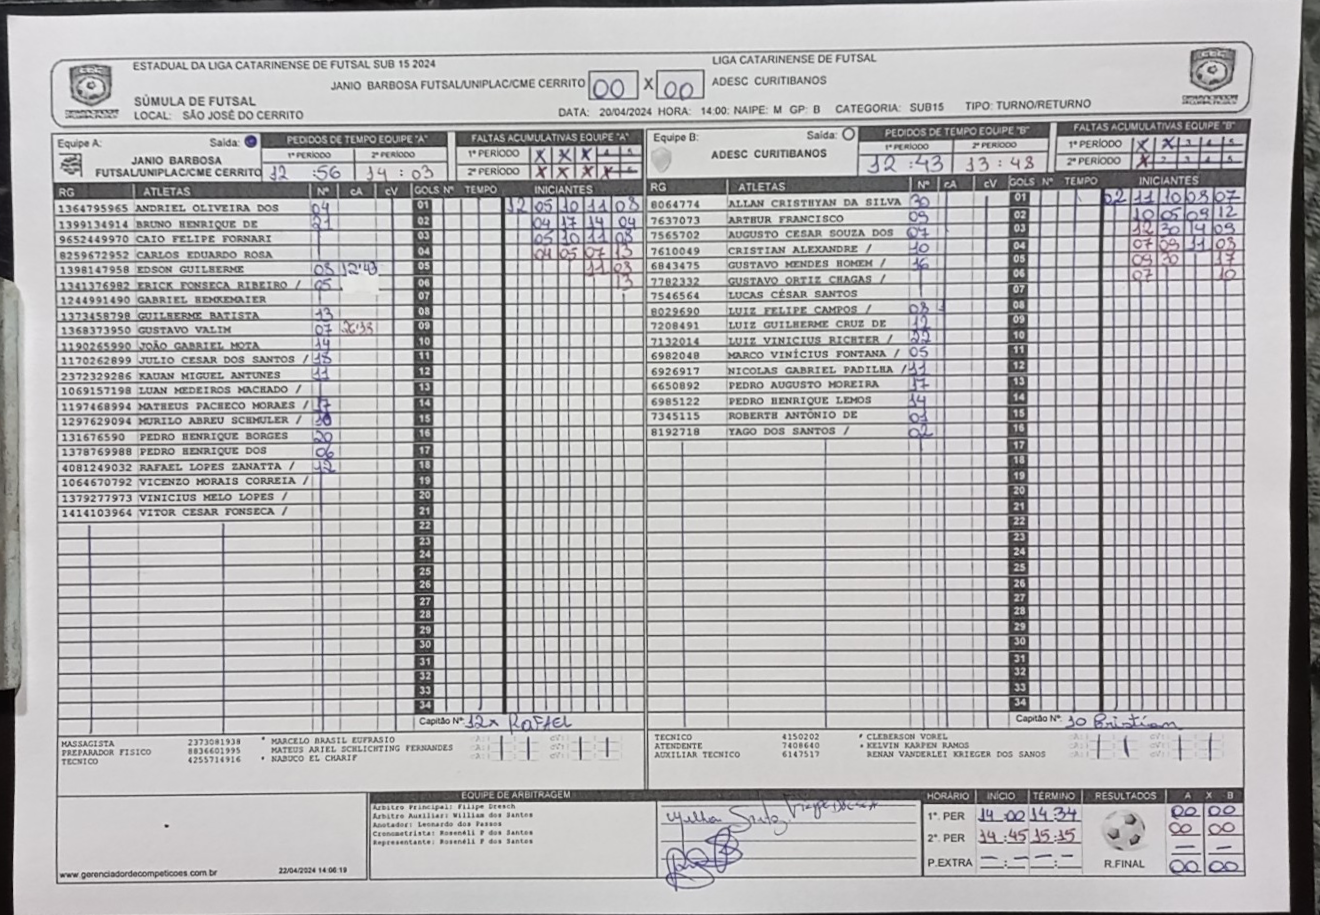 ESTADUAL DA LIGA CATARINENSE DE FUTSAL SUB 15 2024
LIGA CATARINENSE DE FUTSAL
JANIO BARBOSA FUTSAL/UNIPLAC/CME CERRITO 00 X 00 ADESC CURITIBANOS
SÚMULA DE FUTSAL
LOCAL: SÃO JOSÉ DO CERRITO
DATA: 20/04/2024 HORA: 14:00: NAIPE: M GP: B CATEGORIA: SUB15 TIPO: TURNO/RETURNO
Equipe A: Saída:
JANIO BARBOSA
FUTSAL/UNIPLAC/CME CERRITO
PEDIDOS DE TEMPO EQUIPE "A"
1º PERÍODO 2º PERÍODO
12:56 14:03
FALTAS ACUMULATIVAS EQUIPE "A"
1º PERÍODO X X X 4 5
2º PERÍODO X X X X
RG ATLETAS Nº cA cV GOLS Nº TEMPO INICIANTES
1364795965 ANDRIEL OLIVEIRA DOS 04 01 12 05 10 11 08
1399134914 BRUNO HENRIQUE DE 21 02 04 17 14 04
9652449970 CAIO FELIPE FORNARI 03 05 10 11 08
8259672952 CARLOS EDUARDO ROSA 04 04 05 07 13
1398147958 EDSON GUILHERME 12:43 05 11 03
1341376982 ERICK FONSECA RIBEIRO / 05 06 13
1244991490 GABRIEL HEMKEMAIER 07
1373458798 GUILHERME BATISTA 13 08
1368373950 GUSTAVO VALIM 07 09
1190265990 JOÃO GABRIEL MOTA 14 10
1170262899 JULIO CESAR DOS SANTOS / 18 11
2372329286 KAUAN MIGUEL ANTUNES 11 12
1069157198 LUAN MEDEIROS MACHADO / 13
1197468994 MATHEUS PACHECO MORAES / 17 14
1297629094 MURILO ABREU SCHMULER / 15
131676590 PEDRO HENRIQUE BORGES 20 16
1378769988 PEDRO HENRIQUE DOS 06 17
4081249032 RAFAEL LOPES ZANATTA / 12 18
1064670792 VICENZO MORAIS CORREIA / 19
1379277973 VINICIUS MELO LOPES / 20
1414103964 VITOR CESAR FONSECA / 21
22
23
24
25
26
27
28
29
30
31
32
33
34
Capitão Nº: 12 Rafael
MASSAGISTA 2373081938 * MARCELO BRASIL EUFRASIO
PREPARADOR FISICO 8836601995 MATEUS ARIEL SCHLICHTING FERNANDES
TECNICO 4255714916 * NABUCO EL CHARIF
Equipe B: Saída:
ADESC CURITIBANOS
PEDIDOS DE TEMPO EQUIPE "B"
1º PERÍODO 2º PERÍODO
12:43 13:48
FALTAS ACUMULATIVAS EQUIPE "B"
1º PERÍODO X X 3 4 5
2º PERÍODO X 2 3 4 5
RG ATLETAS Nº cA cV GOLS Nº TEMPO INICIANTES
8064774 ALLAN CRISTHYAN DA SILVA 30 01 02 11 10 03 07
7637073 ARTHUR FRANCISCO 09 02 10 05 09 12
7565702 AUGUSTO CESAR SOUZA DOS 07 03 12 30 14 09
7610049 CRISTIAN ALEXANDRE / 10 04 07 09 11 03
6843475 GUSTAVO MENDES HOMEM / 16 05 09 30 17
7782332 GUSTAVO ORTIZ CHAGAS / 06 07 10
7546564 LUCAS CÉSAR SANTOS 07
8029690 LUIZ FELIPE CAMPOS / 03 08
7208491 LUIZ GUILHERME CRUZ DE 12 09
7132014 LUIZ VINICIUS RICHTER / 22 10
6982048 MARCO VINÍCIUS FONTANA / 05 11
6926917 NICOLAS GABRIEL PADILHA / 11 12
6650892 PEDRO AUGUSTO MOREIRA 17 13
6985122 PEDRO HENRIQUE LEMOS 14 14
7345115 ROBERTH ANTÔNIO DE 01 15
8192718 YAGO DOS SANTOS / 02 16
17
18
19
20
21
22
23
24
25
26
27
28
29
30
31
32
33
34
Capitão Nº: 10 Cristian
TECNICO 4150202 * CLEBERSON VOREL
ATENDENTE 7408640 * KELVIN KARPEN RAMOS
AUXILIAR TECNICO 6147517 RENAN VANDERLEI KRIEGER DOS SANOS
EQUIPE DE ARBITRAGEM
Arbitro Principal: Filipe Dresch
Arbitro Auxiliar: William dos Santos
Anotador: Leonardo dos Passos
Cronometrista: Rosenéli P dos Santos
Representante: Rosenéli P dos Santos
www.gerenciadordecompeticoes.com.br 22/04/2024 14:06:19
HORÁRIO INÍCIO TÉRMINO RESULTADOS A X B
1º. PER 14:00 14:34 00 00
2º. PER 14:45 15:15 00 00
P.EXTRA —:— —:— — —
R.FINAL 00 00